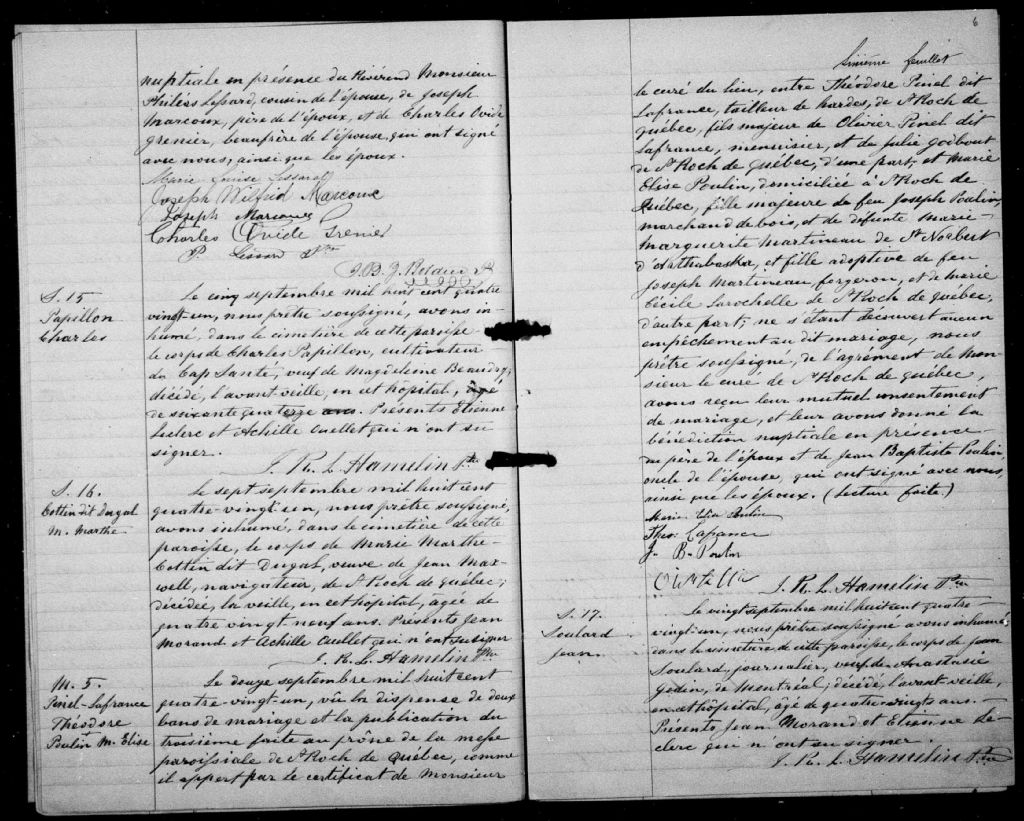 nuptiale en présence du Révérend Monsieur
Philéas Lessard, cousin de l'épouse, de Joseph
Marcoux, père de l'époux, et de Charles Ovide
Grenier, beaufrère de l'épouse, qui ont signé
avec nous, ainsi que les époux.
Marie Louise Lessard
Joseph Wilfrid Marcoux
Joseph Marcoux
Charles Ovide Grenier
P. Lessard Ptre
S. 15
Papillon
Charles
Le cinq septembre mil huit cent quatre
vingt-un, nous prêtre soussigné, avons in-
humé, dans le cimetière de cette paroisse
le corps de Charles Papillon, cultivateur
du Cap Santé, veuf de Magdeleine Beaudry;
décédé, l'avant veille, en cet hôpital, âgé
de soixante quatorze ans. Présents Etienne
Leclerc et Achille Ouellet qui n'ont su
signer.
J. R. L. Hamelin Ptre
S. 16.
Cottin dit Dugal
M. Marthe
Le sept septembre mil huit cent
quatre-vingt-un, nous prêtre soussigné,
avons inhumé, dans le cimetière de cette
paroisse, le corps de Marie Marthe
Cottin dit Dugal, veuve de Jean Max-
well, navigateur, de St Roch de Québec;
décédée, la veille, en cet hôpital, âgée de
quatre vingt neuf ans. Présents Jean
Morand et Achille Ouellet qui n'ont su signer
J. R. L. Hamelin Ptre
M. 5.
Pinel-Lafrance
Théodore
Poulin M. Elise
Le douze septembre mil huit cent
quatre-vingt-un, vu la dispense de deux
bans de mariage et la publication du
troisième faite au prône de la messe
paroissiale de St Roch de Québec, comme
il appert par le certificat de Monsieur
6
Sixième feuillet
le curé du lieu, entre Théodore Pinel dit
Lafrance, tailleur de hardes, de St Roch de
Québec, fils majeur de Olivier Pinel dit
Lafrance, menuisier, et de Julie Godbout
de St Roch de Québec, d'une part, et Marie
Elise Poulin, domiciliée à St Roch de
Québec, fille majeure de feu Joseph Poulin,
marchand de bois, et de défunte Marie-
Marguerite Martineau de St Norbert
d'Arthabaska, et fille adoptive de feu
Joseph Martineau forgeron, et de Marie
Cécile Larochelle de St Roch de Québec,
d'autre part; ne s'étant découvert aucun
empêchement au dit mariage, nous
prêtre soussigné, de l'agrément de Mon-
sieur le curé de St Roch de Québec,
avons reçu leur mutuel consentement
de mariage, et leur avons donné la
bénédiction nuptiale en présence
du père de l'époux et de Jean Baptiste Poulin,
oncle de l'épouse, qui ont signé avec nous,
ainsi que les époux. (Lecture faite)
Marie Elise Poulin
Theo. Lafrance
J. B. Poulin
J. R. L. Hamelin Ptre
S. 17.
Soulard
Jean.
Le vingt septembre mil huit cent quatre
vingt-un, nous prêtre soussigné avons inhumé,
dans le cimetière de cette paroisse, le corps de Jean
Soulard, journalier, veuf de Anastasie
Godin, de Montréal; décédé, l'avant-veille,
en cet hôpital, âgé de quatre-vingts ans.
Présents Jean Morand et Etienne Le-
clerc qui n'ont su signer.
J. R. L. Hamelin Ptre